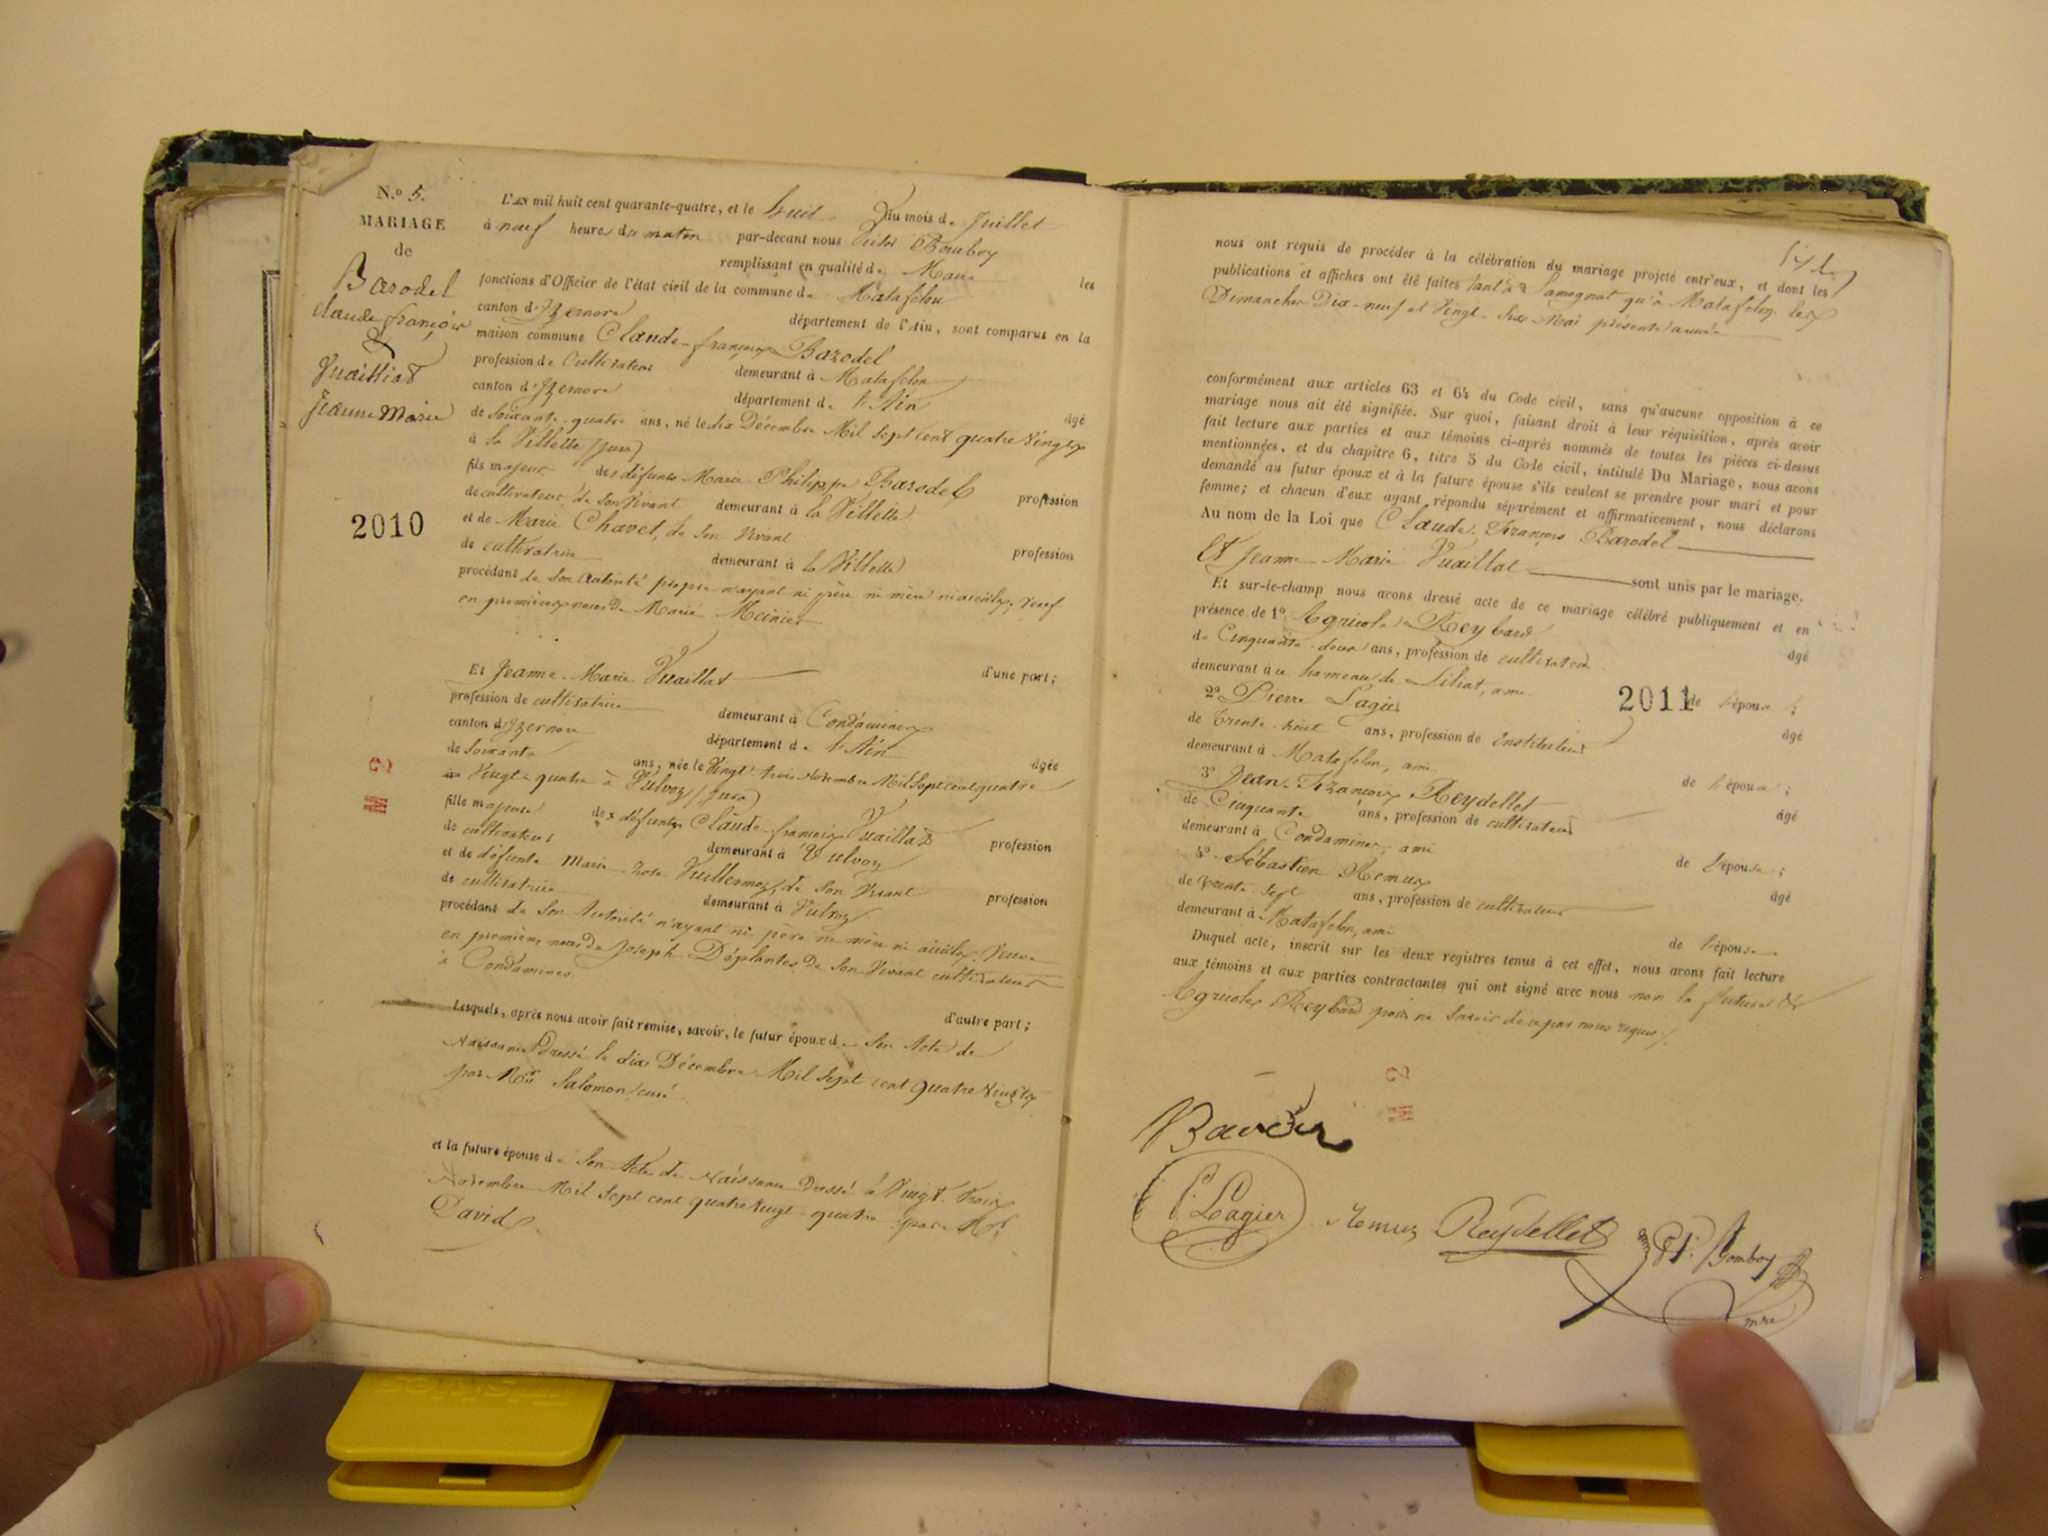 N.º 5.
MARIAGE
de
Barodel
Claude françois
&
Vuaillat
Jeanne Marie
2010
L'AN mil huit cent quarante-quatre, et le huit du mois de Juillet
à neuf heures du matin par-devant nous Victor Bomboy
remplissant en qualité de Maire les
fonctions d'Officier de l'état civil de la commune de Matafelon
canton d'Izernore département de l'Ain, sont comparus en la
maison commune Claude-françois Barodel
profession de Cultivateur demeurant à Matafelon
canton d'Izernore département de l'Ain âgé
de soixante-quatre ans, né le dix Décembre Mil sept cent quatre vingts
à la Villette (Jura)
fils majeur des défunts Marie Philippe Barodel, profession
de cultivateur de son Vivant demeurant à la Villette
et de Marie Chavet, de son Vivant profession
de cultivatrice demeurant à la Villette
procédant de son autorité propre n'ayant ni père ni mère ni aieulx, Veuf
en premières noces de Marie Meinier
d'une part;
Et Jeanne-Marie Vuaillat
profession de cultivatrice demeurant à Condamines
canton d'Izernore département de l'Ain âgée
de soixante ans, née le Vingt trois Novembre Mil sept cent quatre
Vingt-quatre à Vulvoz (Jura)
fille majeure des défunts Claude-françois Vuaillat profession
de cultivateur demeurant à Vulvoz
et de défunte Marie-rose Vuillermoz, de son Vivant profession
de cultivatrice demeurant à Vulvoz
procédant de son Autorité n'ayant ni père ni mère ni aieulx, Veuve
en premières noces de Joseph Déplantes, de son Vivant cultivateur
à Condamines
d'autre part;
Lesquels, après nous avoir fait remise, savoir, le futur époux de son Acte de
Naissance dressé le dix Décembre Mil sept cent quatre Vingts
par Mr Salomon curé
et la future épouse de son Acte de Naissance dressé le Vingt trois
Novembre Mil sept cent quatre vingt-quatre par Mr
David.
nous ont requis de procéder à la célébration du mariage projeté entr'eux, et dont les
publications et affiches ont été faites tant à Samognat qu'à Matafelon les
Dimanches Dix-neuf et Vingt-six Mai présente année
conformément aux articles 63 et 64 du Code civil, sans qu'aucune opposition à ce
mariage nous ait été signifiée. Sur quoi, faisant droit à leur réquisition, après avoir
fait lecture aux parties et aux témoins ci-après nommés de toutes les pièces ci-dessus
mentionnées, et du chapitre 6, titre 5 du Code civil, intitulé Du Mariage, nous avons
demandé au futur époux et à la future épouse s'ils veulent se prendre pour mari et pour
femme; et chacun d'eux ayant répondu séparément et affirmativement, nous déclarons
Au nom de la Loi que Claude-François Barodel
Et Jeanne-Marie Vuaillat sont unis par le mariage.
Et sur-le-champ nous avons dressé acte de ce mariage célébré publiquement et en
présence de 1º Agricole Reybard âgé
de Cinquante-deux ans, profession de cultivateur
demeurant à hameau de ami de l'épouse;
2º Pierre Lagier âgé
de Trente-huit ans, profession de Instituteur
demeurant à Matafelon, ami de l'épouse;
3º Jean-François Reydellet âgé
de Cinquante ans, profession de cultivateur
demeurant à Condamines, ami de l'épouse;
4º Sébastien Remux âgé
de trente-sept ans, profession de cultivateur
demeurant à Matafelon, ami de l'épouse
2011
Duquel acte, inscrit sur les deux registres tenus à cet effet, nous avons fait lecture
aux témoins et aux parties contractantes qui ont signé avec nous non la future et
Agricole Reybard pour ne savoir de ce par nous requis.
P. Lagier Remux Reydellet Bomboy
mre